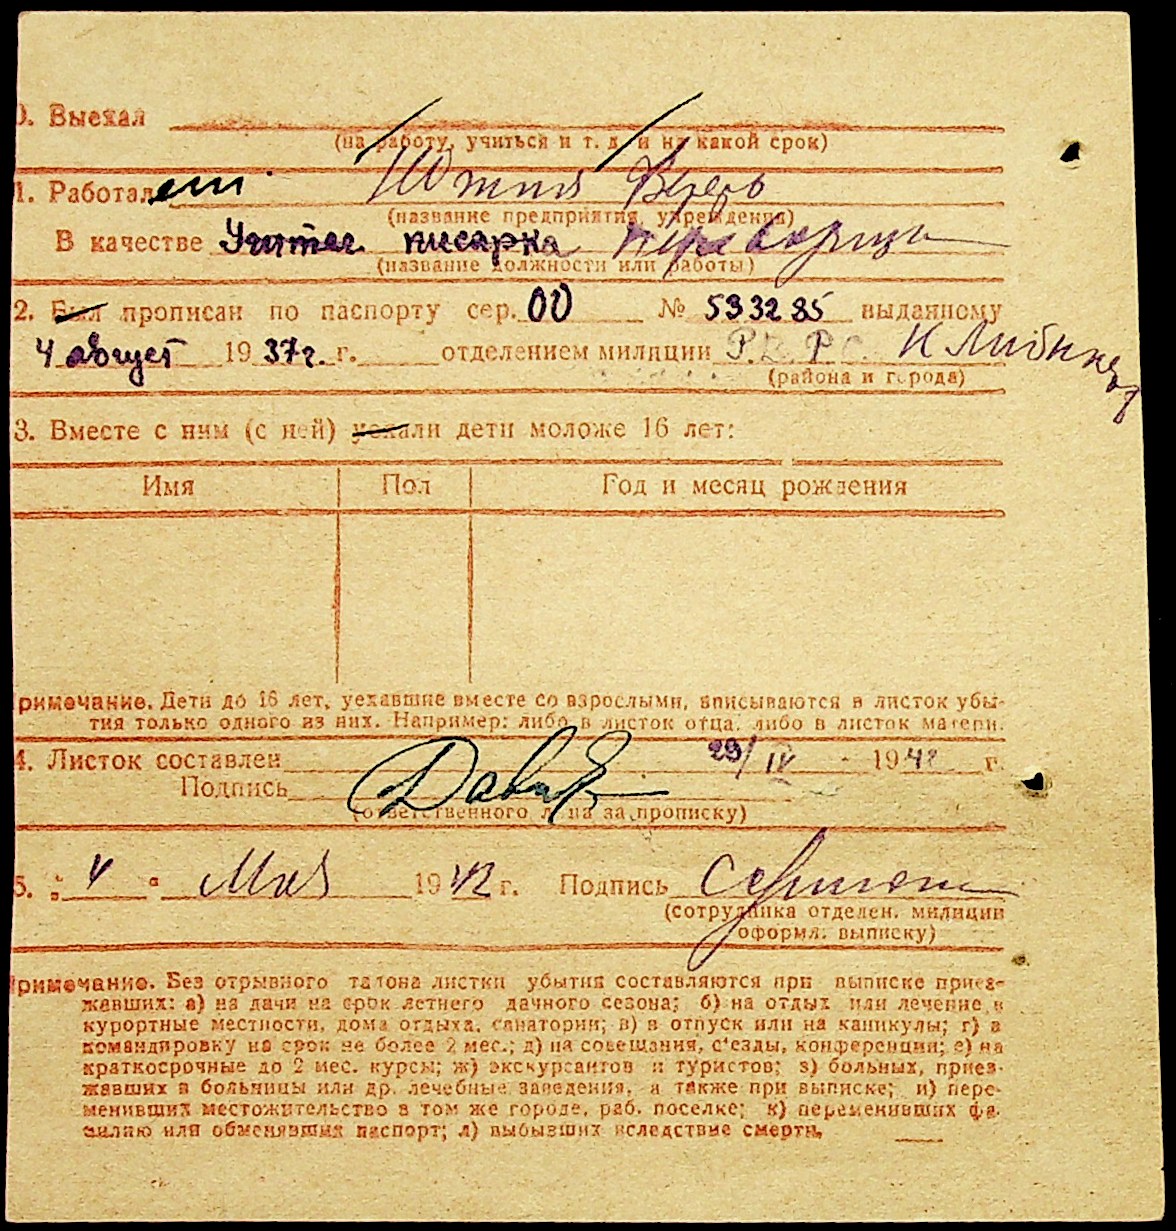 0. Выехал
(на работу, учиться и т. д. и на какой срок)
1. Работал
(название предприятия, учреждения)
В качестве писарка
(название должности или работы)
2. Был прописан по паспорту сер. 00 № 533285 выданному
4 август 1937г. г. отделением милиции
(района и города)
3. Вместе с ним (с ней) уехали дети моложе 16 лет:
Имя Пол Год и месяц рождения
римечание. Дети до 16 лет, уехавшие вместе со взрослыми, вписываются в листок убы-
тия только одного из них. Например: либо в листок отца, либо в листок матери.
4. Листок составлен 29/IV 1942 г.
Подпись
(ответственного лица за прописку)
5. „ 4 “ Мая 1942 г. Подпись
(сотрудника отделен. милиции
оформл. выписку)
Примечание. Без отрывного талона листки убытия составляются при выписке приез-
жавших: а) на дачи на срок летнего дачного сезона; б) на отдых или лечение в
курортные местности, дома отдыха, санатории; в) в отпуск или на каникулы; г) в
командировку на срок не более 2 мес.; д) на совещания, с'езды, конференции; е) на
краткосрочные до 2 мес. курсы; ж) экскурсантов и туристов; з) больных, приез-
жавших в больницы или др. лечебные заведения, а также при выписке; и) пере-
менивших местожительство в том же городе, раб. поселке; к) переменивших фа-
милию или обменявших паспорт; л) выбывших вследствие смерти.